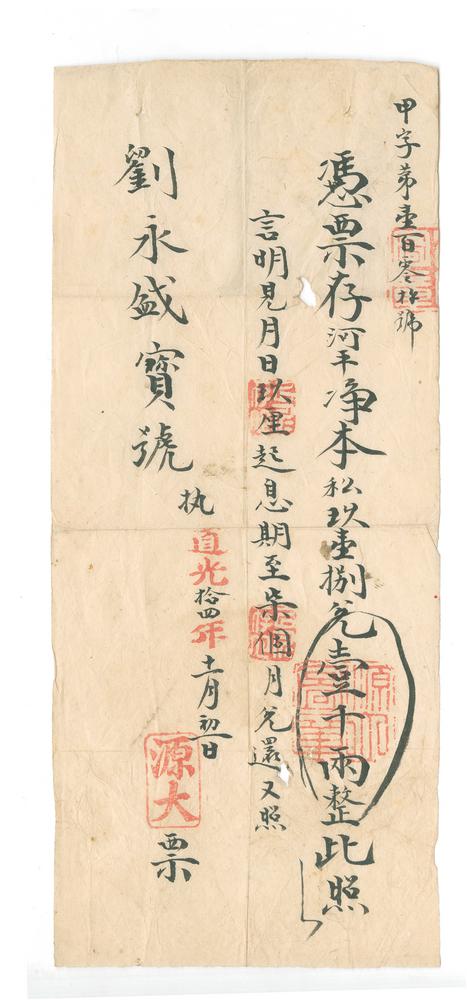 甲字第壹百零拾號
憑票存河平净本私玖壹捌兑壹千兩整此照
言明見月日玖厘起息期至柒個月兑還又照
劉永盛寶號
执
道光拾四年十一月初一日
源大
票